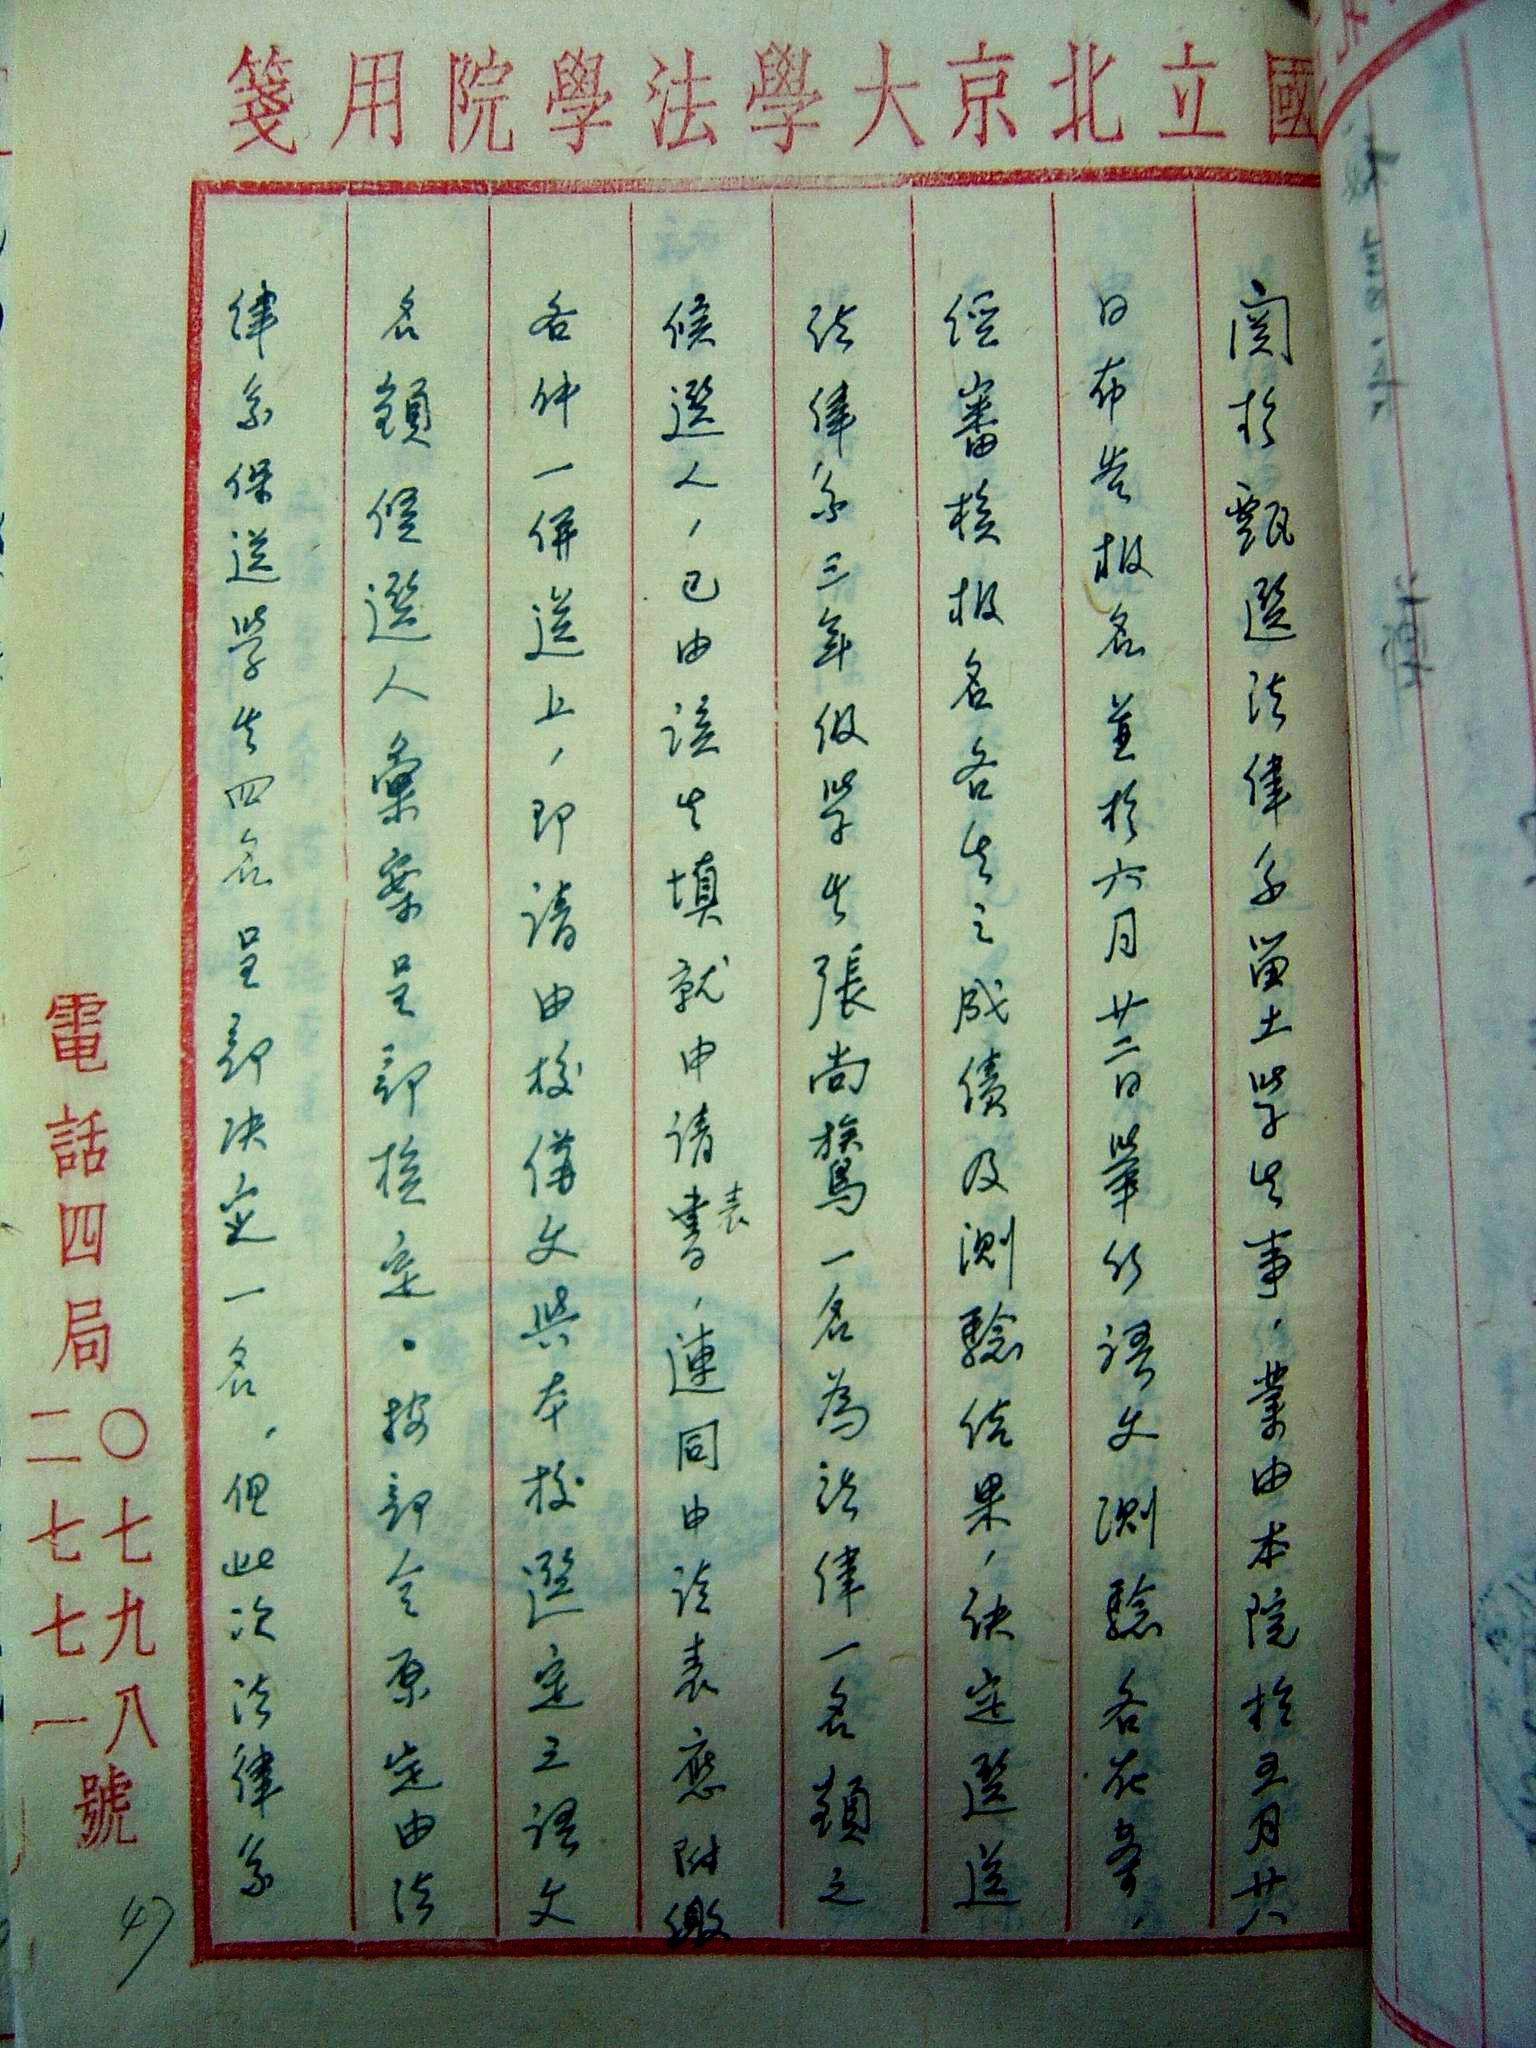 國立北京大學法學院用箋
關於甄選法律系留土學生事，業由本院於五月廿八
日布告报名並於六月廿二日舉行語文測驗各在案，
經審核报名各生之成績及測驗結果，決定選送
法律系三年级學生張尚鷟一名為法律一名額之
候選人，已由該生填就申請書表，連同申請表應附繳
各件一併送上，即請由校備文與本校選定之語文
名額候選人彙案呈部核定。按部令原定由法
律系保送學生四名呈部决定一名，但此次法律系
電話四局〇七九八 二七七一號
47